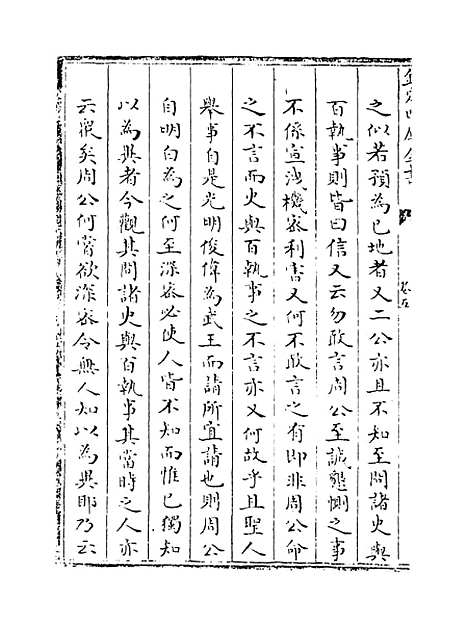 欽定四庫全書
卷五
之似若預為已地者又二公亦且不知至問諸史與
百執事則皆曰信又云勿敢言周公至誠懇惻之事
不係宣洩機密利害又何不敢言之有即非周公命
之不言而史與百執事之不言亦又何故乎且聖人
舉事自是光明俊偉為武王而請所宜請也則周公
自明白為之何至深密必使人皆不知而惟已獨知
以為異者今觀其問諸史與百執事其當時之人亦
云衆矣周公何嘗欲深密令無人知以為異耶乃云